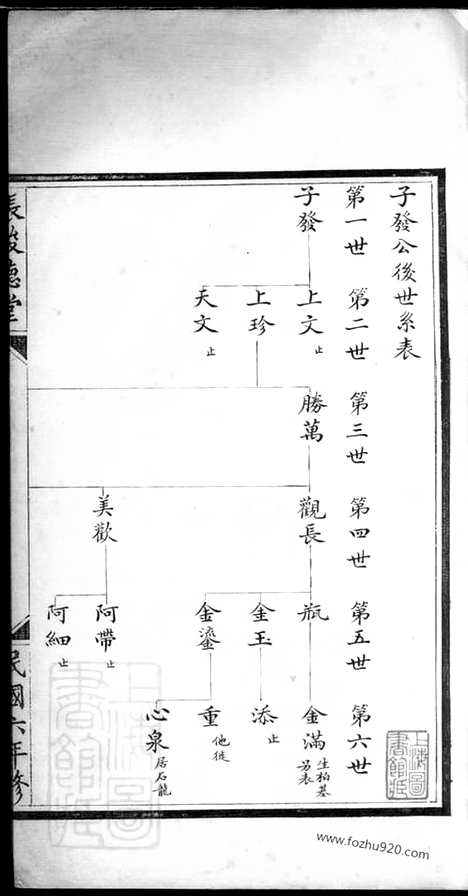 子發公後世系表
第一世 第二世 第三世 第四世 第五世 第六世
子發
上文 止
上珍
天文 止
勝萬
觀長
美歡
瓶
金玉
金鎏
阿帶 止
阿細 止
金滿 生柏基 另表
添 止
重 他徙
心泉 居石龍
德堂
民國六年修
上海圖書館藏
上海圖書館藏
www.fozhu920.com